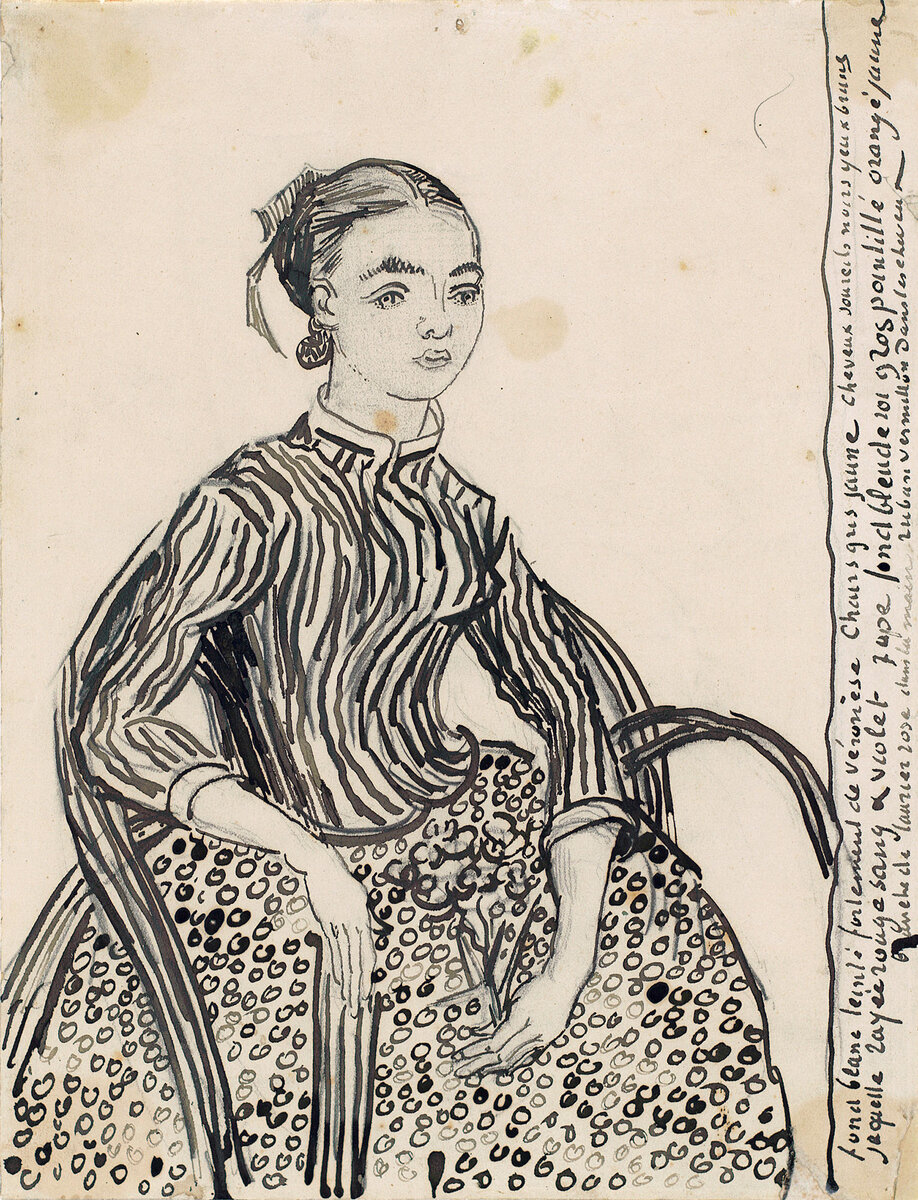 fond blanc teinté fortement de véronèse Chairs gris jaune Cheveux sourcils noirs yeux bruns
jaquette rayée rouge sang & violet jupe fond bleu de roi gros pointillé orangé jaune
branche de laurier rose dans la main ruban vermillon dans les cheveux